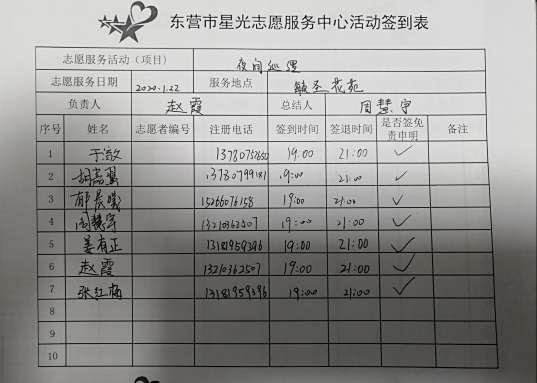 东营市星光志愿服务中心活动签到表
志愿服务活动（项目） 夜间巡逻
志愿服务日期 2020.1.22 服务地点 毓圣花苑
负责人 赵霞 总结人 周慧宇
序号 姓名 志愿者编号 注册电话 签到时间 签退时间 是否签免责申明 备注
1 于澂 19:00 21:00 ✓
2 胡高翼 13780799181 19:00 21:00 ✓
3 郁长曦 15266076158 19:00 21:00 ✓
4 周慧宇 13210362507 19:00 21:00 ✓
5 姜有正 13181959396 19:00 21:00 ✓
6 赵霞 13210362507 19:00 21:00 ✓
7 张红梅 13181959396 19:00 21:00 ✓
8
9
10